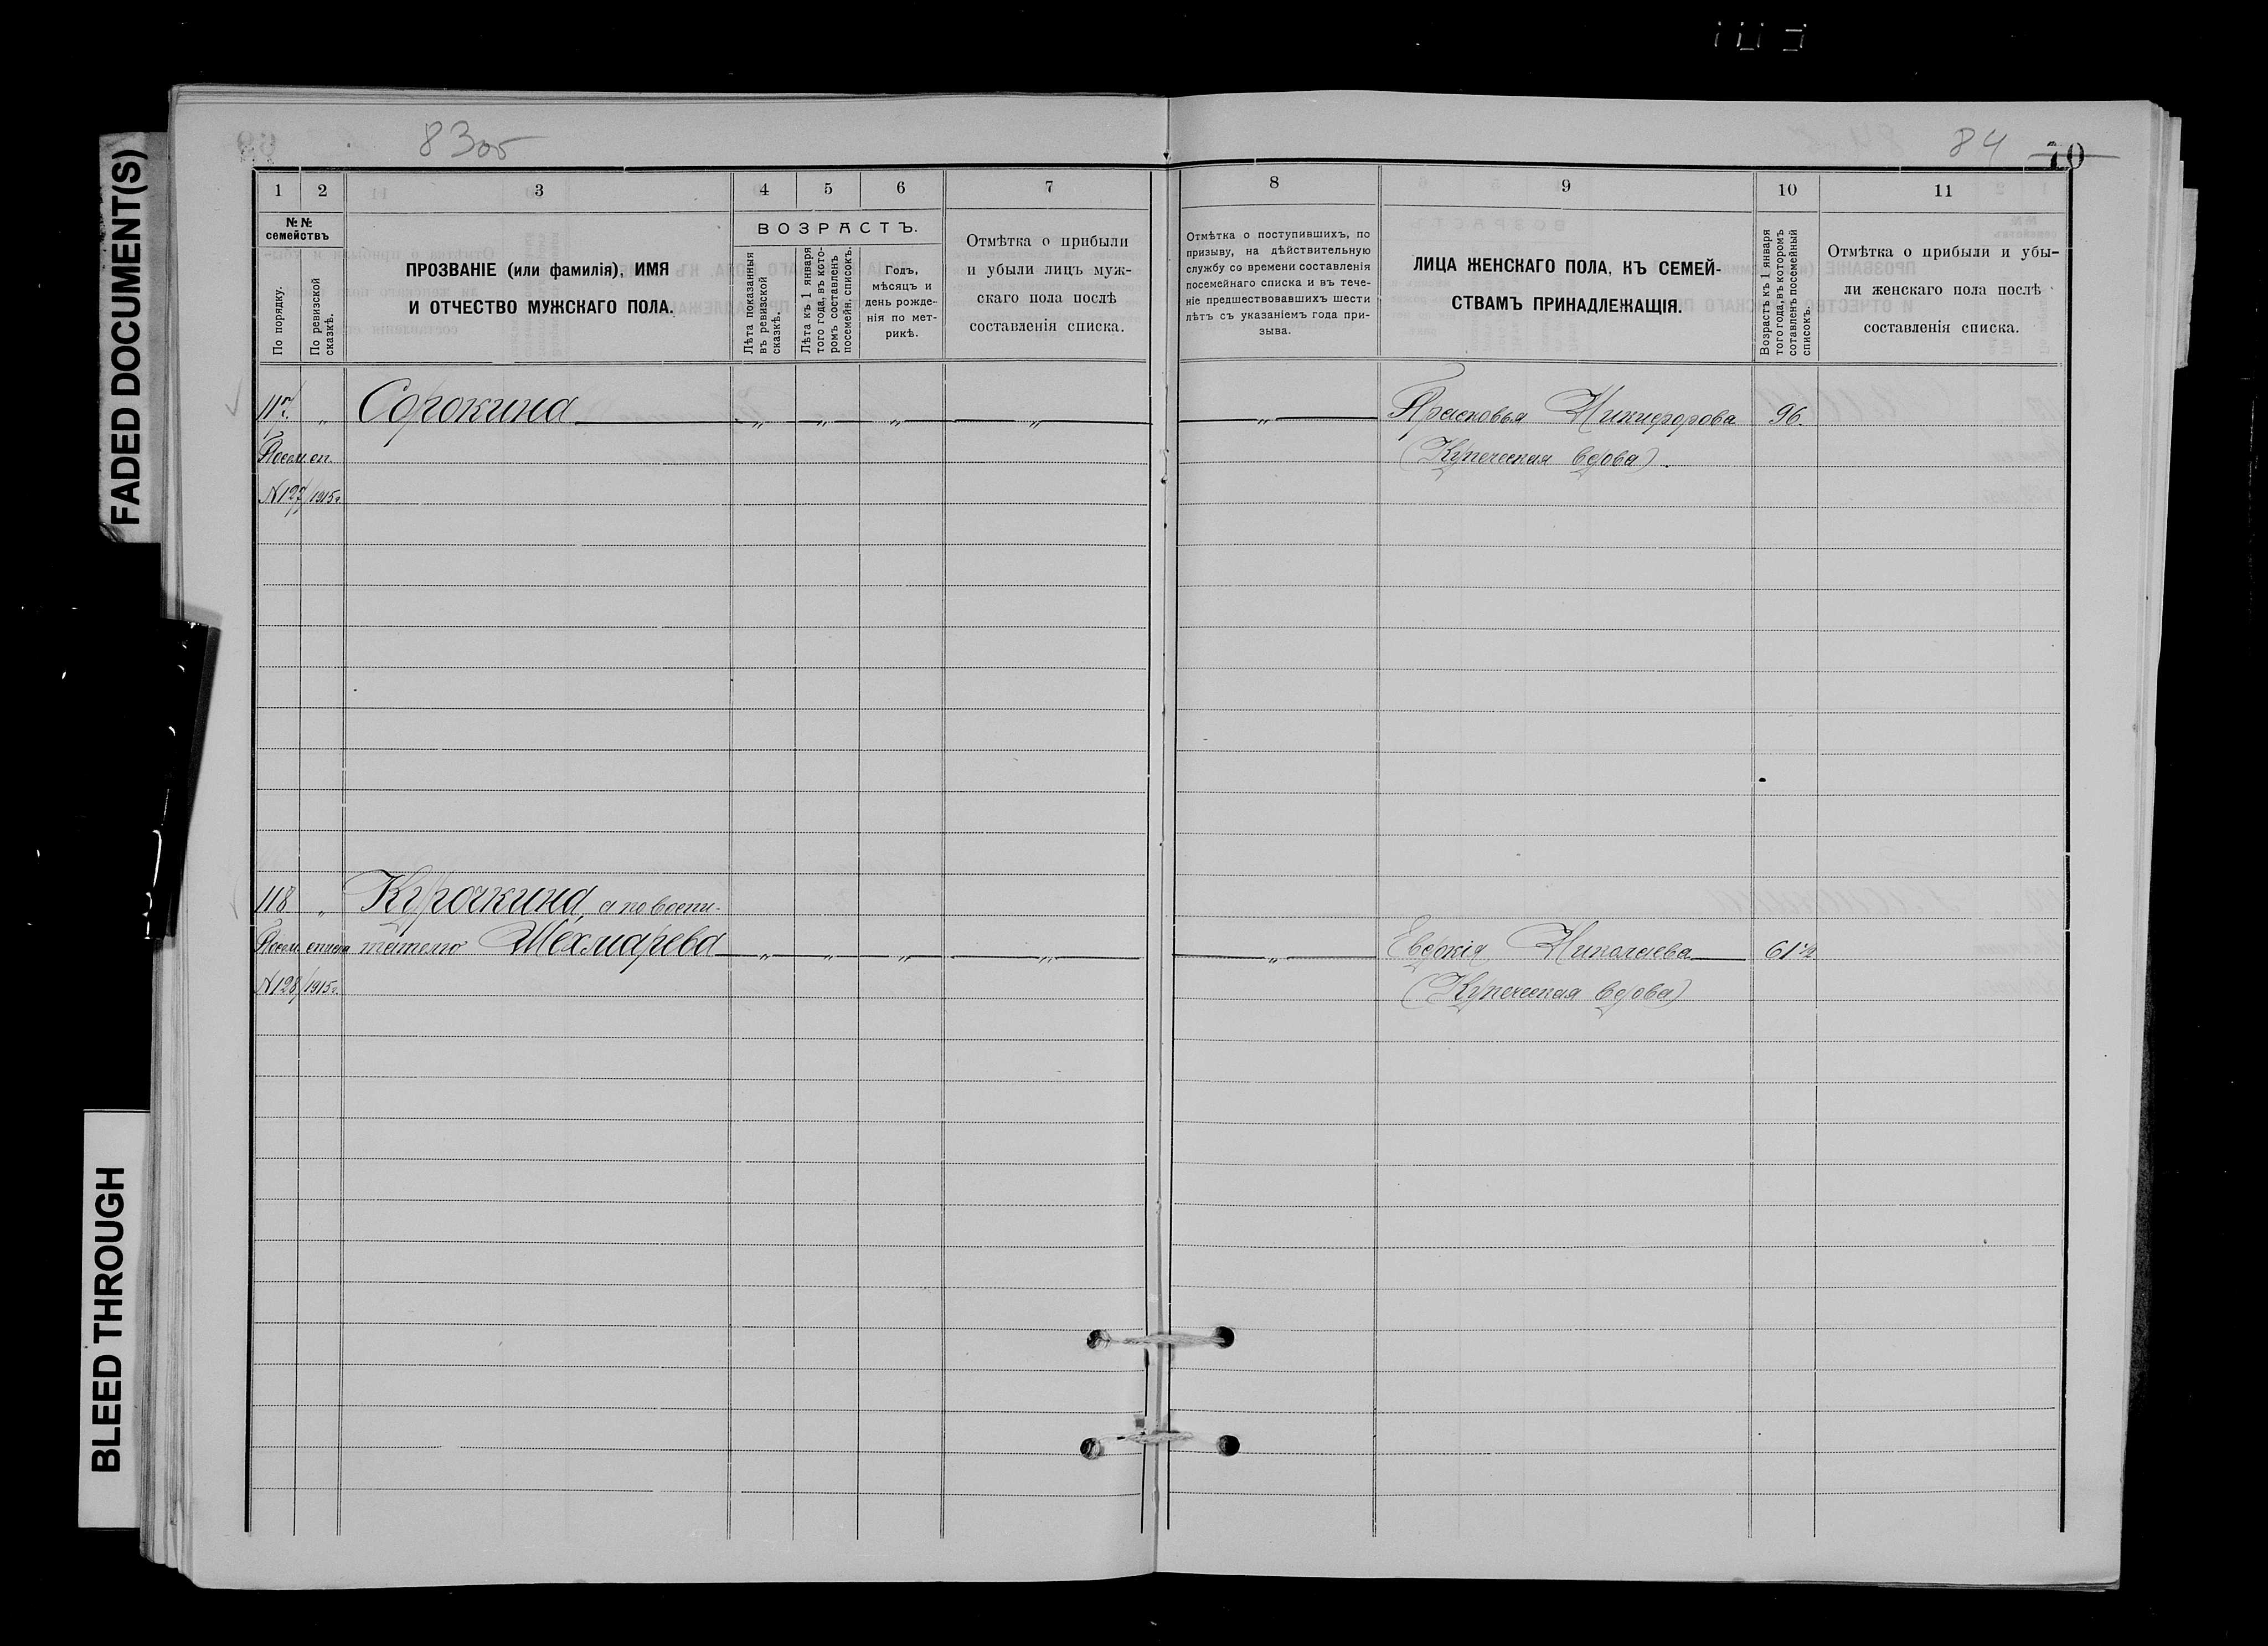 FADED DOCUMENT(S)
BLEED THROUGH
83об
84
70
1 2 3 4 5 6 7
№№ семействъ
По порядку.
По ревизской сказкѣ.
ПРОЗВАНІЕ (или фамилія), ИМЯ
И ОТЧЕСТВО МУЖСКАГО ПОЛА.
ВОЗРАСТЪ.
Лѣта показанныя
въ ревизской
сказкѣ.
Лѣта къ 1 января
того года, въ кото-
ромъ составленъ
посемейн. списокъ.
Годъ,
мѣсяцъ и
день рожде-
нія по мет-
рикѣ.
Отмѣтка о прибыли
и убыли лицъ муж-
скаго пола послѣ
составленія списка.
117. „ Сорокина „ „ „ „
Посем. сп.
№127/1915г.
118 „ Курочкина, а по воспи-
Посем. списка тателю Шехмарева „ „ „ „
№128/1915г.
8 9 10 11
Отмѣтка о поступившихъ, по
призыву, на дѣйствительную
службу со времени составленія
посемейнаго списка и въ тече-
ніе предшествовавшихъ шести
лѣтъ съ указаніемъ года при-
зыва.
ЛИЦА ЖЕНСКАГО ПОЛА, КЪ СЕМЕЙ-
СТВАМЪ ПРИНАДЛЕЖАЩІЯ.
Возрастъ къ 1 января
того года, въ которомъ
сотавленъ посемейный
списокъ.
Отмѣтка о прибыли и убы-
ли женскаго пола послѣ
составленія списка.
„ Прасковья Никифорова 96.
(Купеческая вдова).
„ Евдокія Николаева 61 1/2
(Купеческая вдова)